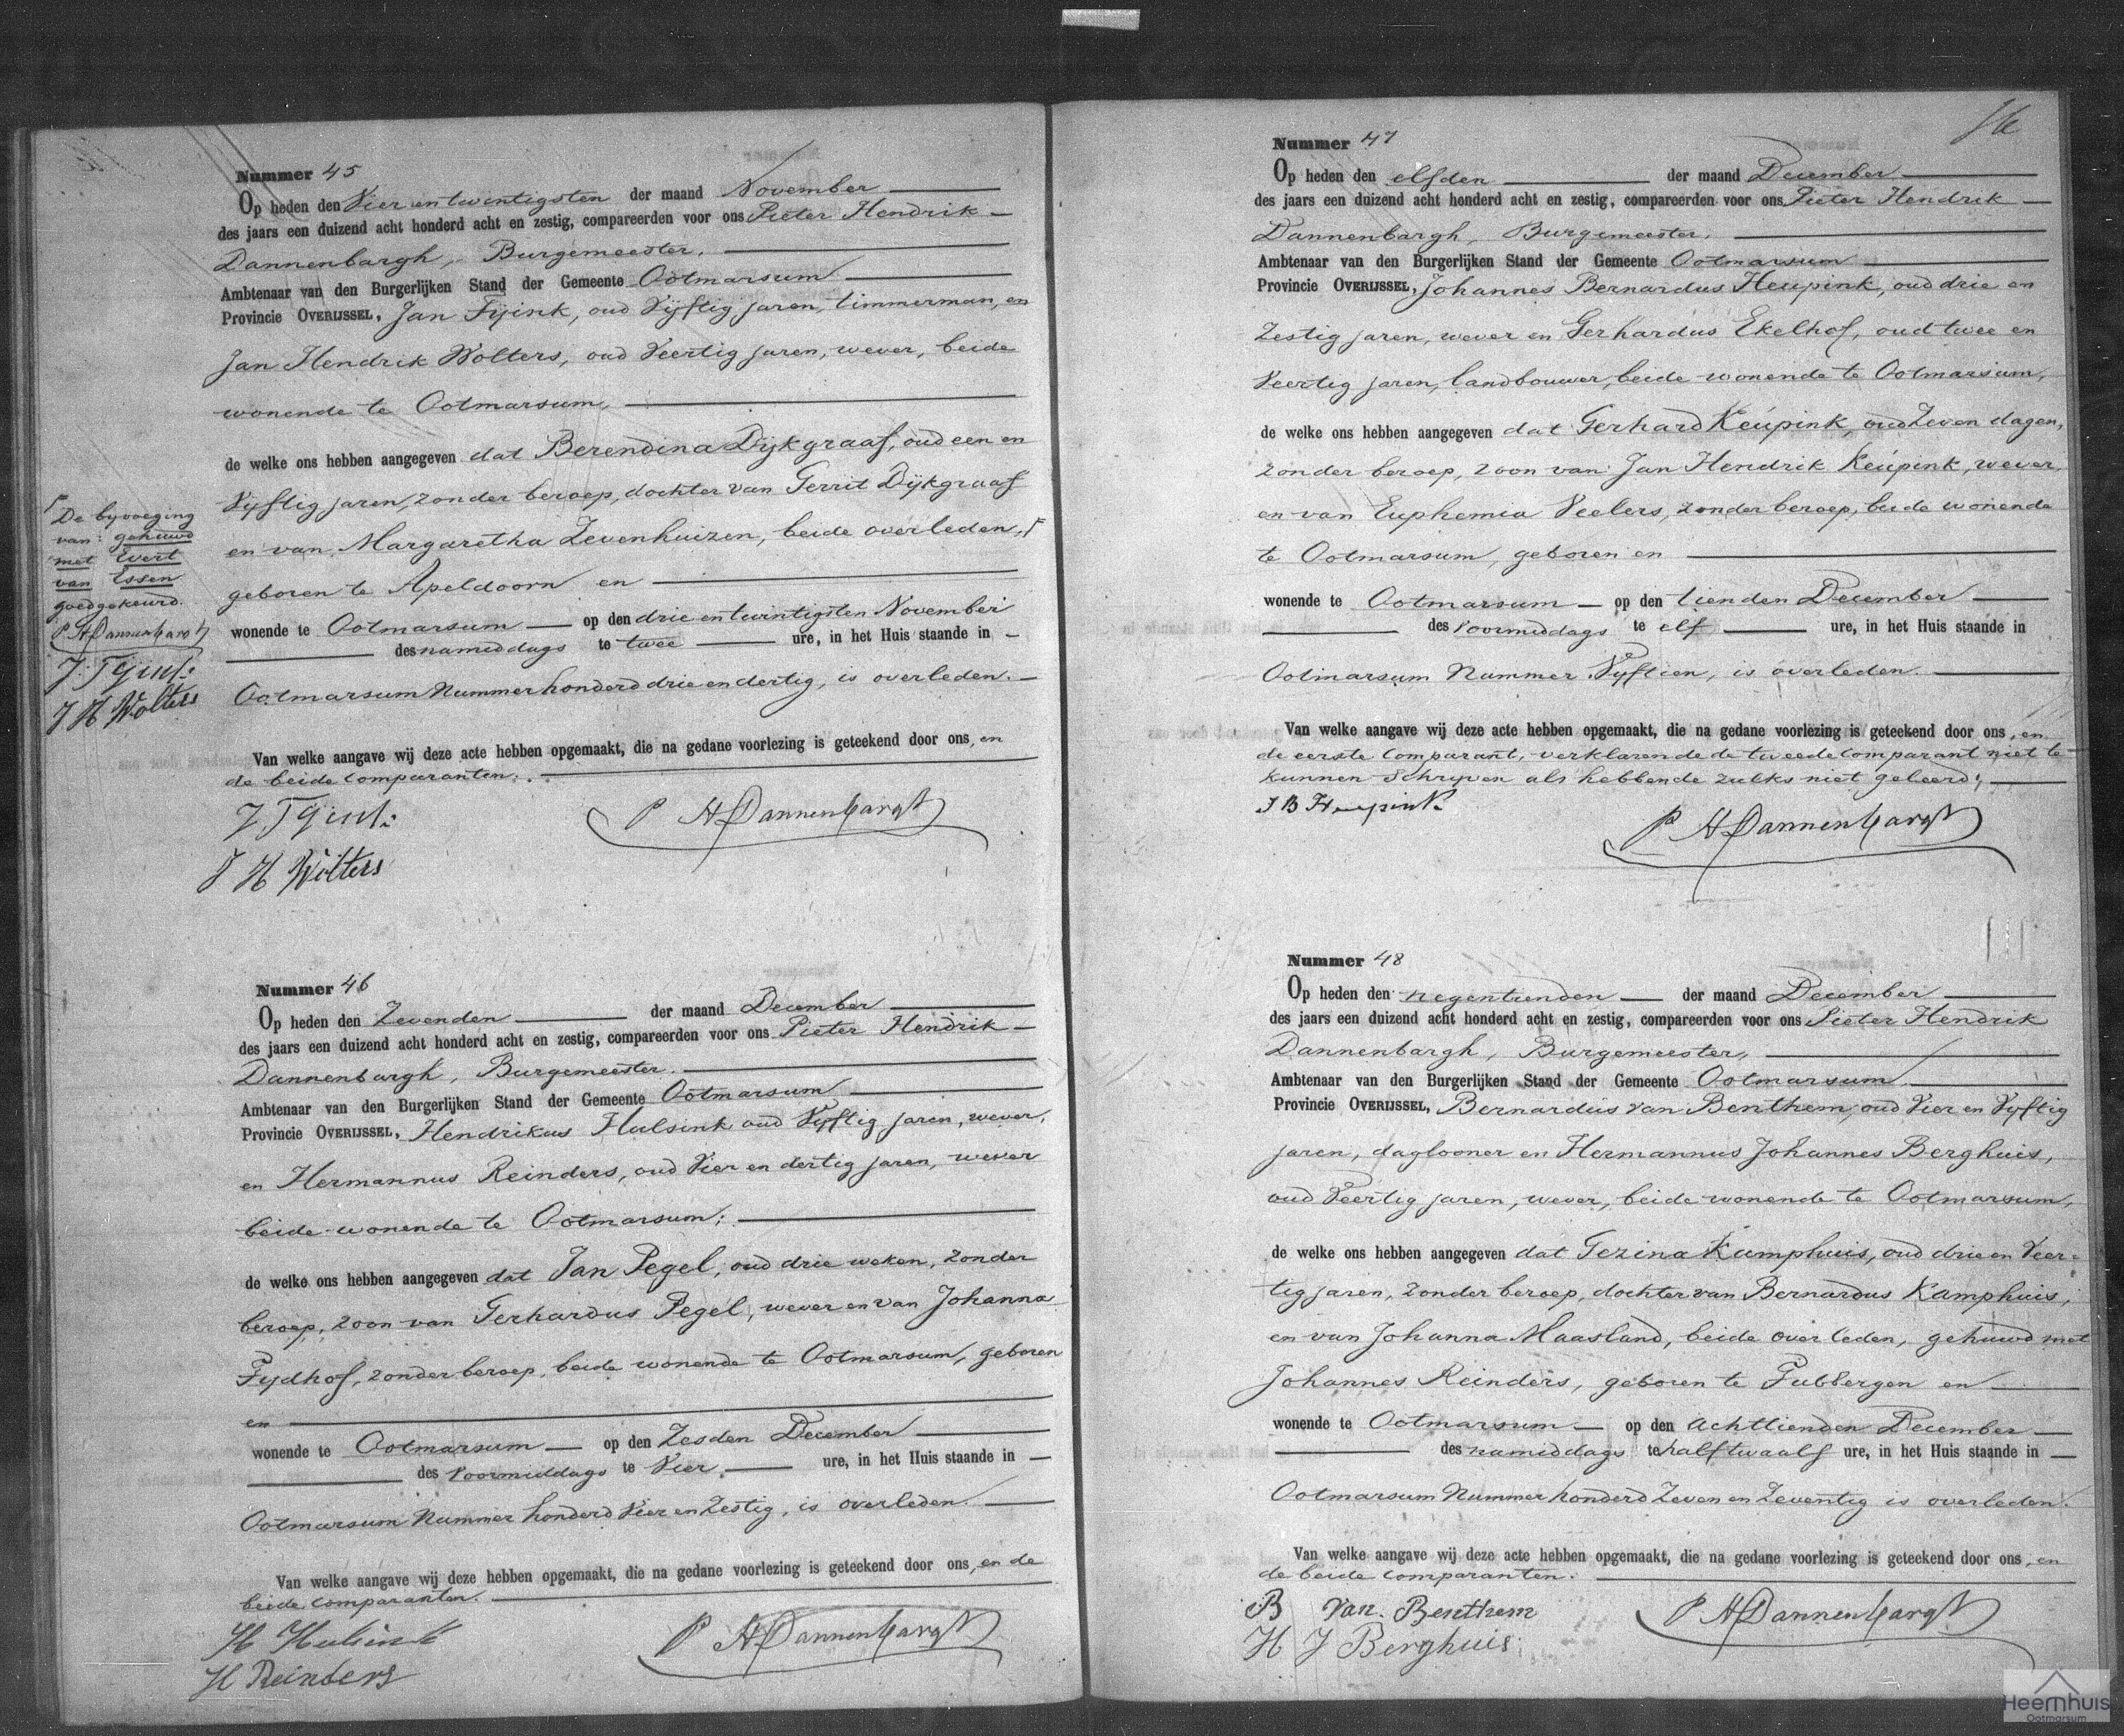 Nummer 45
Op heden den Vier en twintigsten der maand November
des jaars een duizend acht honderd acht en zestig, compareerden voor ons Pieter Hendrik
Dannenbargh, Burgemeester,
Ambtenaar van den Burgerlijken Stand der Gemeente Ootmarsum
Provincie OVERIJSSEL, Jan Fijink, oud Vijftig jaren, timmerman, en
Jan Hendrik Wolters, oud Veertig jaren, wever, beide
wonende te Ootmarsum,
de welke ons hebben aangegeven dat Berendina Dijkgraaf, oud een en
Vijftig jaren, zonder beroep, dochter van Gerrit Dijkgraaf
en van Margaretha Zevenhuizen, beide overleden,
geboren te Apeldoorn en
wonende te Ootmarsum op den drie en twintigsten November
des namiddags te twee ure, in het Huis staande in
Ootmarsum Nummer honderd drie en dertig, is overleden.
Van welke aangave wij deze acte hebben opgemaakt, die na gedane voorlezing is geteekend door ons, en
de beide comparanten.
P H Dannenbargh
J H Wolters
De byvoeging
van: gehuwd
met Evert
van Essen
goedgekeurd.
P H Dannenbargh
J H Wolters
Nummer 46
Op heden den Zevenden der maand December
des jaars een duizend acht honderd acht en zestig, compareerden voor ons Pieter Hendrik
Dannenbargh, Burgemeester.
Ambtenaar van den Burgerlijken Stand der Gemeente Ootmarsum
Provincie OVERIJSSEL, Hendrikus Hulsink oud Vijftig jaren, wever,
en Hermannus Reinders, oud Vier en dertig jaren, wever
beide wonende te Ootmarsum;
de welke ons hebben aangegeven dat Jan Pegel, oud drie weken, zonder
beroep, zoon van Gerhardus Pegel, wever en van Johanna
Fydhof, zonder beroep, beide wonende te Ootmarsum, geboren
en
wonende te Ootmarsum op den Zesden December
des Voormiddags te Vier ure, in het Huis staande in
Ootmarsum Nummer honderd Vier en Zestig, is overleden.
Van welke aangave wij deze hebben opgemaakt, die na gedane voorlezing is geteekend door ons, en de
beide comparanten.
H Hulsink
P H Dannenbargh
H Reinders
16
Nummer 47
Op heden den elfden der maand December
des jaars een duizend acht honderd acht en zestig, compareerden voor ons Pieter Hendrik
Dannenbargh, Burgemeester,
Ambtenaar van den Burgerlijken Stand der Gemeente Ootmarsum
Provincie OVERIJSSEL, Johannes Bernardus Heupink, oud drie en
Zestig jaren, wever en Gerhardus Ekelhof, oud twee en
Veertig jaren, landbouwer, beide wonende te Ootmarsum,
de welke ons hebben aangegeven dat Gerhard Keupink, oud Zeven dagen,
zonder beroep, zoon van Jan Hendrik Keupink, wever,
en van Euphemia Veelers, zonder beroep, beide wonende
te Ootmarsum, geboren en
wonende te Ootmarsum op den tienden December
des Voormiddags te elf ure, in het Huis staande in
Ootmarsum Nummer Vyftien, is overleden.
Van welke aangave wij deze acte hebben opgemaakt, die na gedane voorlezing is geteekend door ons, en
de eerste comparant, verklarende de tweede comparant niet te
kunnen schryven als hebbende zulks niet geleerd;
J B Heupink
P H Dannenbargh
Nummer 48
Op heden den negentienden der maand December
des jaars een duizend acht honderd acht en zestig, compareerden voor ons Pieter Hendrik
Dannenbargh, Burgemeester,
Ambtenaar van den Burgerlijken Stand der Gemeente Ootmarsum
Provincie OVERIJSSEL, Bernardus van Benthem, oud Vier en Vyftig
jaren, daglooner en Hermannus Johannes Berghuis,
oud Veertig jaren, wever, beide wonende te Ootmarsum,
de welke ons hebben aangegeven dat Gezina Kamphuis, oud drie en Veer=
tig jaren, zonder beroep, dochter van Bernardus Kamphuis,
en van Johanna Maasland, beide overleden, gehuwd met
Johannes Reinders, geboren te Tubbergen en
wonende te Ootmarsum op den achttienden December
des namiddags te half twaalf ure, in het Huis staande in
Ootmarsum Nummer honderd Zeven en Zeventig is overleden.
Van welke aangave wij deze acte hebben opgemaakt, die na gedane voorlezing is geteekend door ons, en
de beide comparanten.
B van Benthem
P H Dannenbargh
H J Berghuis
Heemhuis
Ootmarsum